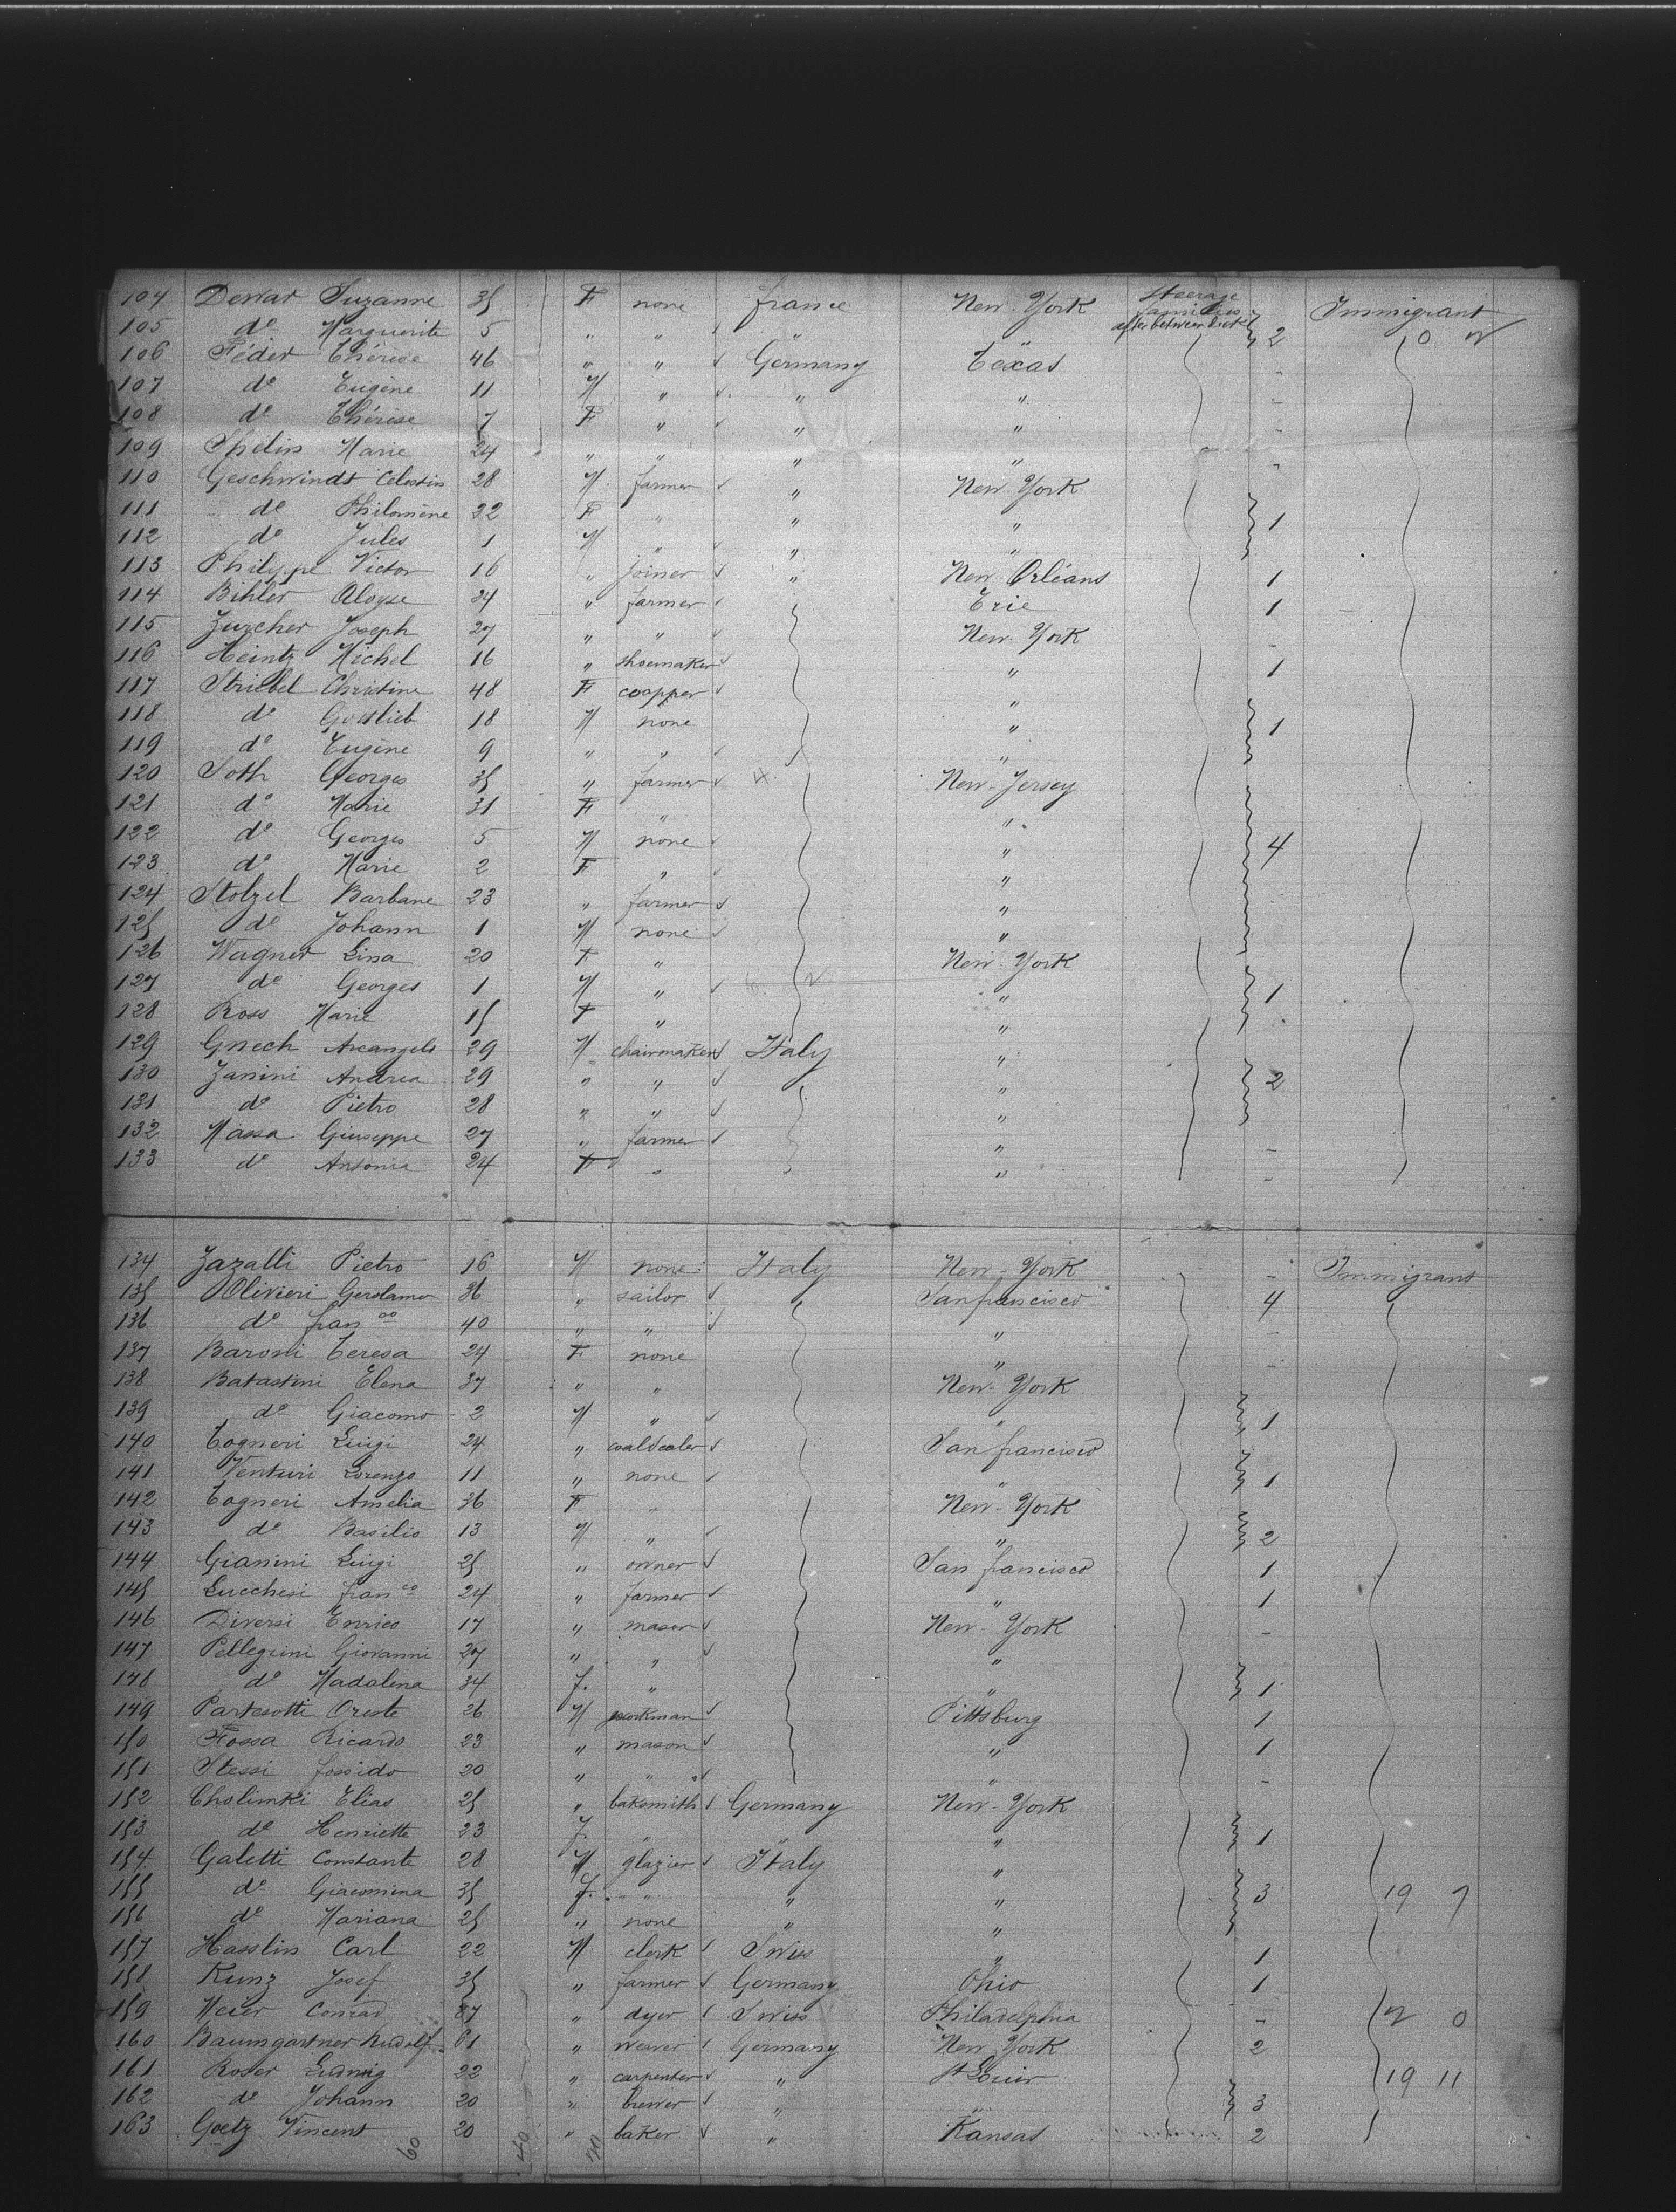 104 Dewar Suzanne 35 F none france New-York Steerage families after between deck Immigrant
105 do Marguerite 5 " " " " 2 0 2
106 Féder Thérèse 46 " " Germany Texas -
107 do Eugène 11 M " " " -
108 do Thérèse 7 F " " " -
109 Marie 24 " " " " -
110 Geschwindt Celestin 28 M farmer " New-York
111 do Philomène 22 F " " " 1
112 do Jules 1 M " " "
113 Philippe Victor 16 " joiner " New Orléans 1
114 Bihler Aloyse 24 " farmer Erie 1
115 Zurcher Joseph 27 " " New-York -
116 Heintz Michel 16 " shoemaker " 1
117 Striebel Christine 48 F coopper "
118 do Gottlieb 18 M none " 1
119 do Eugène 9 " " "
120 Toth Georges 35 " farmer New-Jersey
121 do Marie 31 F " "
122 do Georges 5 M none " 4
123 do Marie 2 F " "
124 Stolzel Barbane 23 " farmer "
125 do Johann 1 M none "
126 Wagner Lina 20 F " New-York
127 do Georges 1 M " " 1
128 Ross Marie 15 F " "
129 Gnech Arcangelo 29 M chairmaker Italy "
130 Zanini Andrea 29 " " " 2
131 do Pietro 28 " " "
132 Massa Giuseppe 27 " farmer " -
133 do Antonia 24 F " " -
134 Zazalli Pietro 16 M none Italy New-York - Immigrant
135 Olivieri Gerolamo 36 " sailor San francisco 4
136 do franco 40 " " " -
137 Baroni Teresa 24 F none " -
138 Batastini Elena 37 " " New-York
139 do Giacomo 2 M " " 1
140 Togneri Luigi 24 " coaldealer San francisco
141 Venturi Lorenzo 11 " none " 1
142 Togneri Amelia 36 F " New-York
143 do Basilio 13 M " " 2
144 Gianini Luigi 25 " owner San francisco 1
145 Lucchesi franco 24 " farmer " 1
146 Diversi Enrico 17 " mason New-York -
147 Pellegrini Giovanni 27 " " "
148 do Madalena 34 f. " " 1
149 Partesotti Oreste 26 M workman Pittsburg 1
150 Fossa Ricardo 23 " mason " 1
151 Stessi 20 " " " -
152 Cholimki Elias 25 " baksmith Germany New-York
153 do Henriette 23 f. " " " 1
154 Galetti Constante 28 M glazier Italy "
155 do Giacomina 35 f. " " " 3 19 7
156 do Mariana 25 " none " "
157 Hasslin Carl 22 M clerk Swiss " 1
158 Kunz Josef 35 " farmer Germany Ohio 1
159 Meier Conrad 37 " dyer Swiss Philadelphia - 2 0
160 Baumgartner Rudolf 61 " weaver Germany New York 2
161 Roser Ludwig 22 " carpenter " St Louis 19 11
162 do Johann 20 " brewer " " 3
163 Goetz Vincent 20 " baker " Kansas 2
60 40